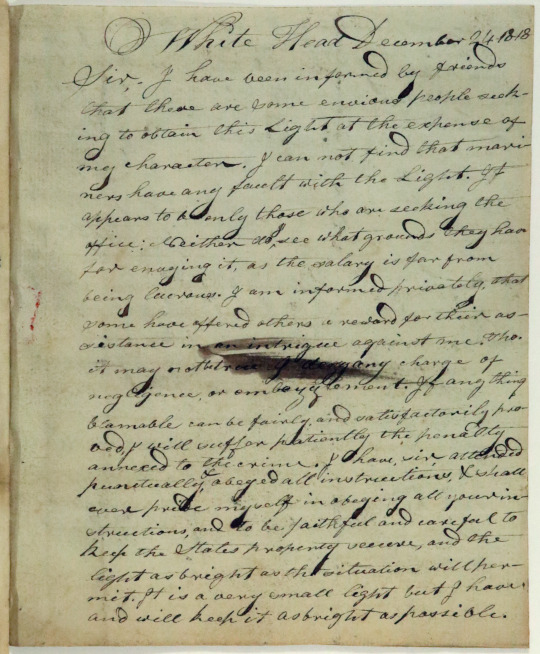 White Head December 24 1818
Sir, I have been informed by friends
that there are some envious people seek-
ing to obtain this Light at the expense of
my character. I can not find that mari-
ners have any faoult with the Light. It
appears to be only those who are seeking the
office: Neither do I, see what grounds they have
for envying it, as the salary is far from
being lucrous. I am informed privately, that
some have offered others a reward for their as-
sistance in an intrigue against me. Tho.
it may not be true I deny any charge of
negligence, or embezzlement. If any thing
blamable can be fairly, and satisfactorily pro-
ved, I will suffer patiently the penalty
annexed to the crime. I have, sir, attended
punctually, & obeyed all instructions, & shall
ever pride myself in obeying all your in-
structions, and to be faithful and careful to
keep the States property secure, and the
light as bright as the situation will per-
mit. It is a very small light but I have
and will keep it as bright as possible.